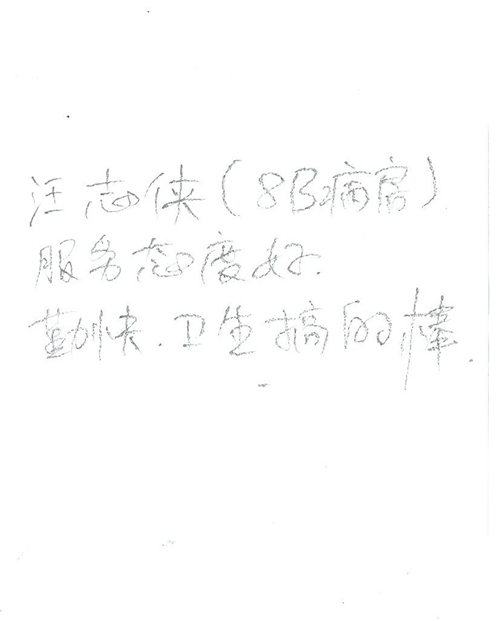 汪志侠（8B病房）
服务态度好.
勤快.卫生搞的棒.